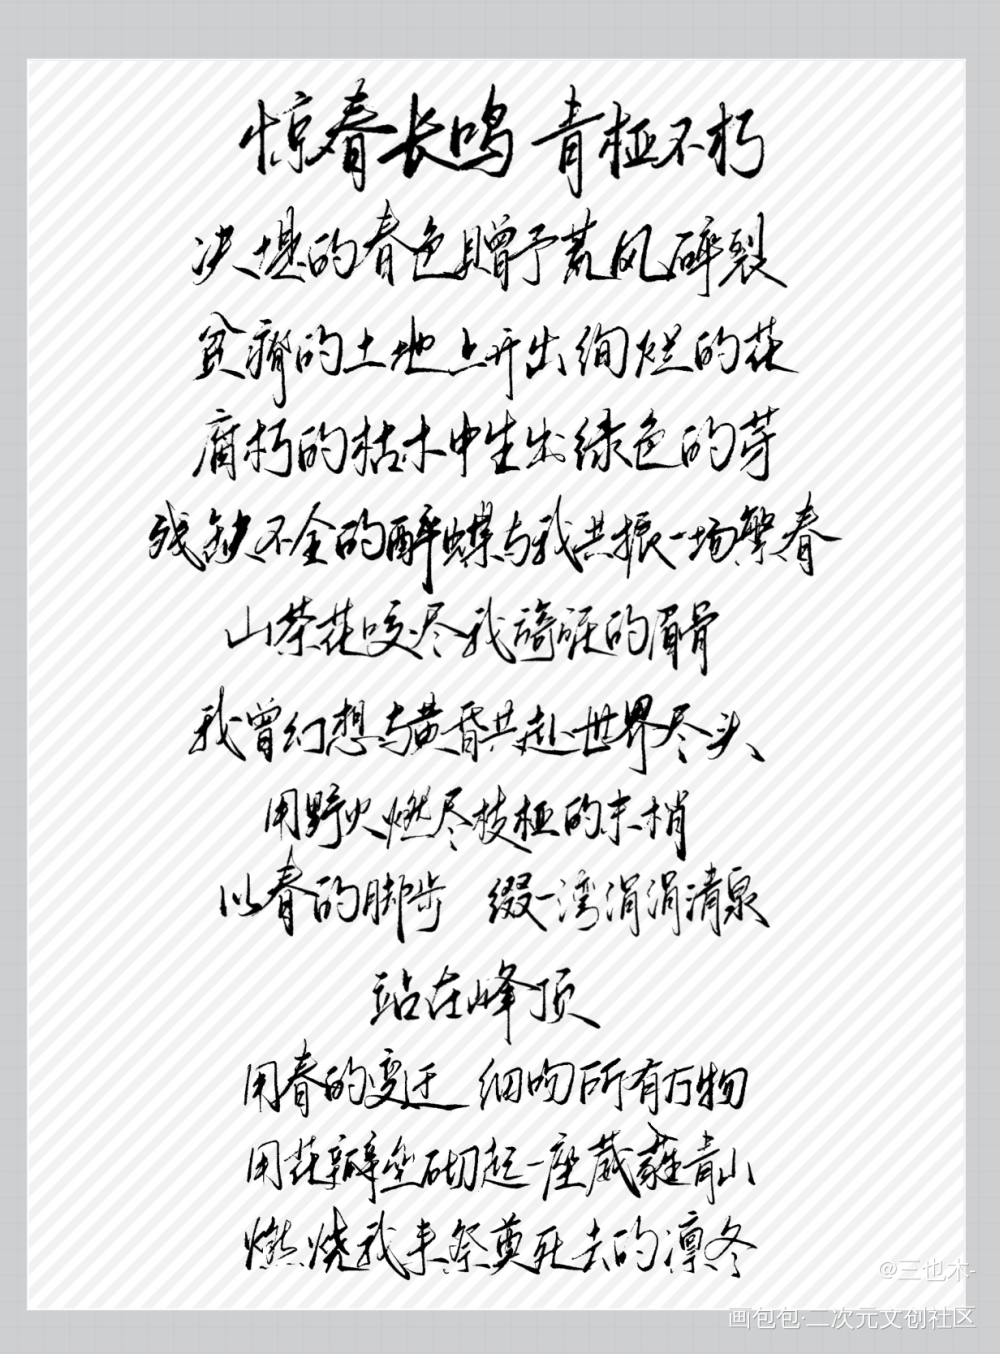 惊春长鸣 青桠不朽
决堤的春色赠予荒风碎裂
贫瘠的土地上开出绚烂的花
腐朽的枯木中生出绿色的芽
残缺不全的醉蝶与我共振一场繁春
山茶花咬尽我旖旎的眉骨
我曾幻想与黄昏共赴世界尽头
用野火燃尽枝桠的末梢
以春的脚步 缀一湾涓涓清泉
站在峰顶
用春的变迁 细吻所有万物
用花瓣垒砌起一座葳蕤青山
燃烧我来祭奠死去的凛冬
@三也木-
画包包·二次元文创社区